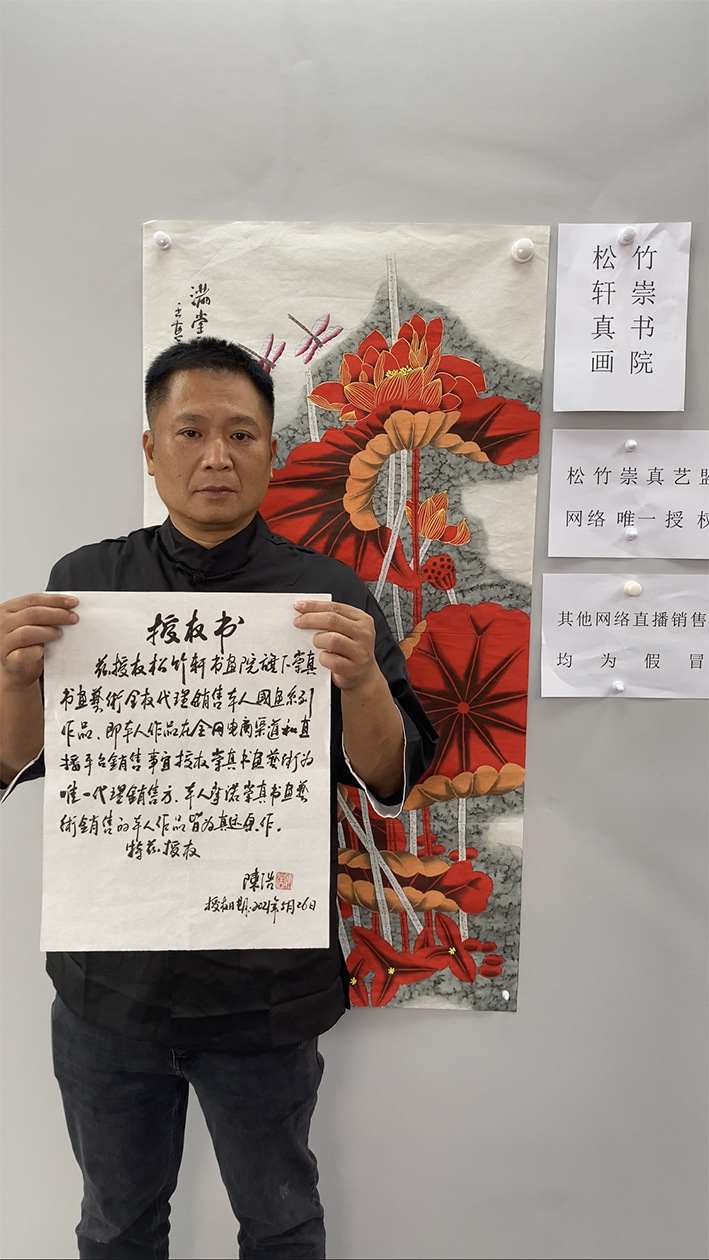 滿堂
授权书
兹授权松竹轩书画院旗下崇真
书画藝術全权代理銷售本人國画系列
作品、即本人作品在全网电商渠道和直
播平台銷售事宜授权崇真书画藝術为
唯一代理銷售方、本人承诺崇真书画藝
術銷售的本人作品皆为真迹作。
特兹授权
陳浩
授权日期:2021年5月26日
松竹
轩崇
真书
画院
松竹崇真艺
网络唯一授权
其他网络直播销售
均为假冒